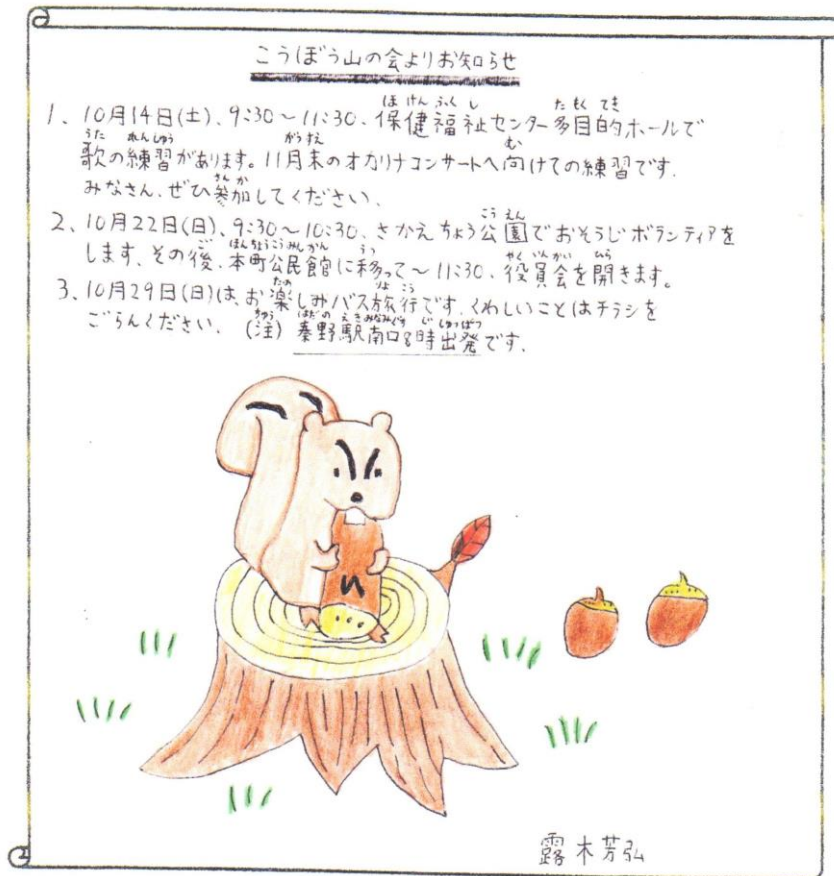 こうぼう山の会よりお知らせ
1、10月14日(土)、9:30～11:30、保健福祉センター多目的ホールで
歌の練習があります。11月末のオカリナコンサートへ向けての練習です。
みなさん、ぜひ参加してください。
2、10月22日(日)、9:30～10:30、さかえちょう公園でおそうじボランティアを
します、その後、本町公民館に移って～11:30、役員会を開きます。
3、10月29日(日)は、お楽しみバス旅行です、くわしいことはチラシを
ごらんください、(注)秦野駅南口8時出発です。
い
露木芳弘